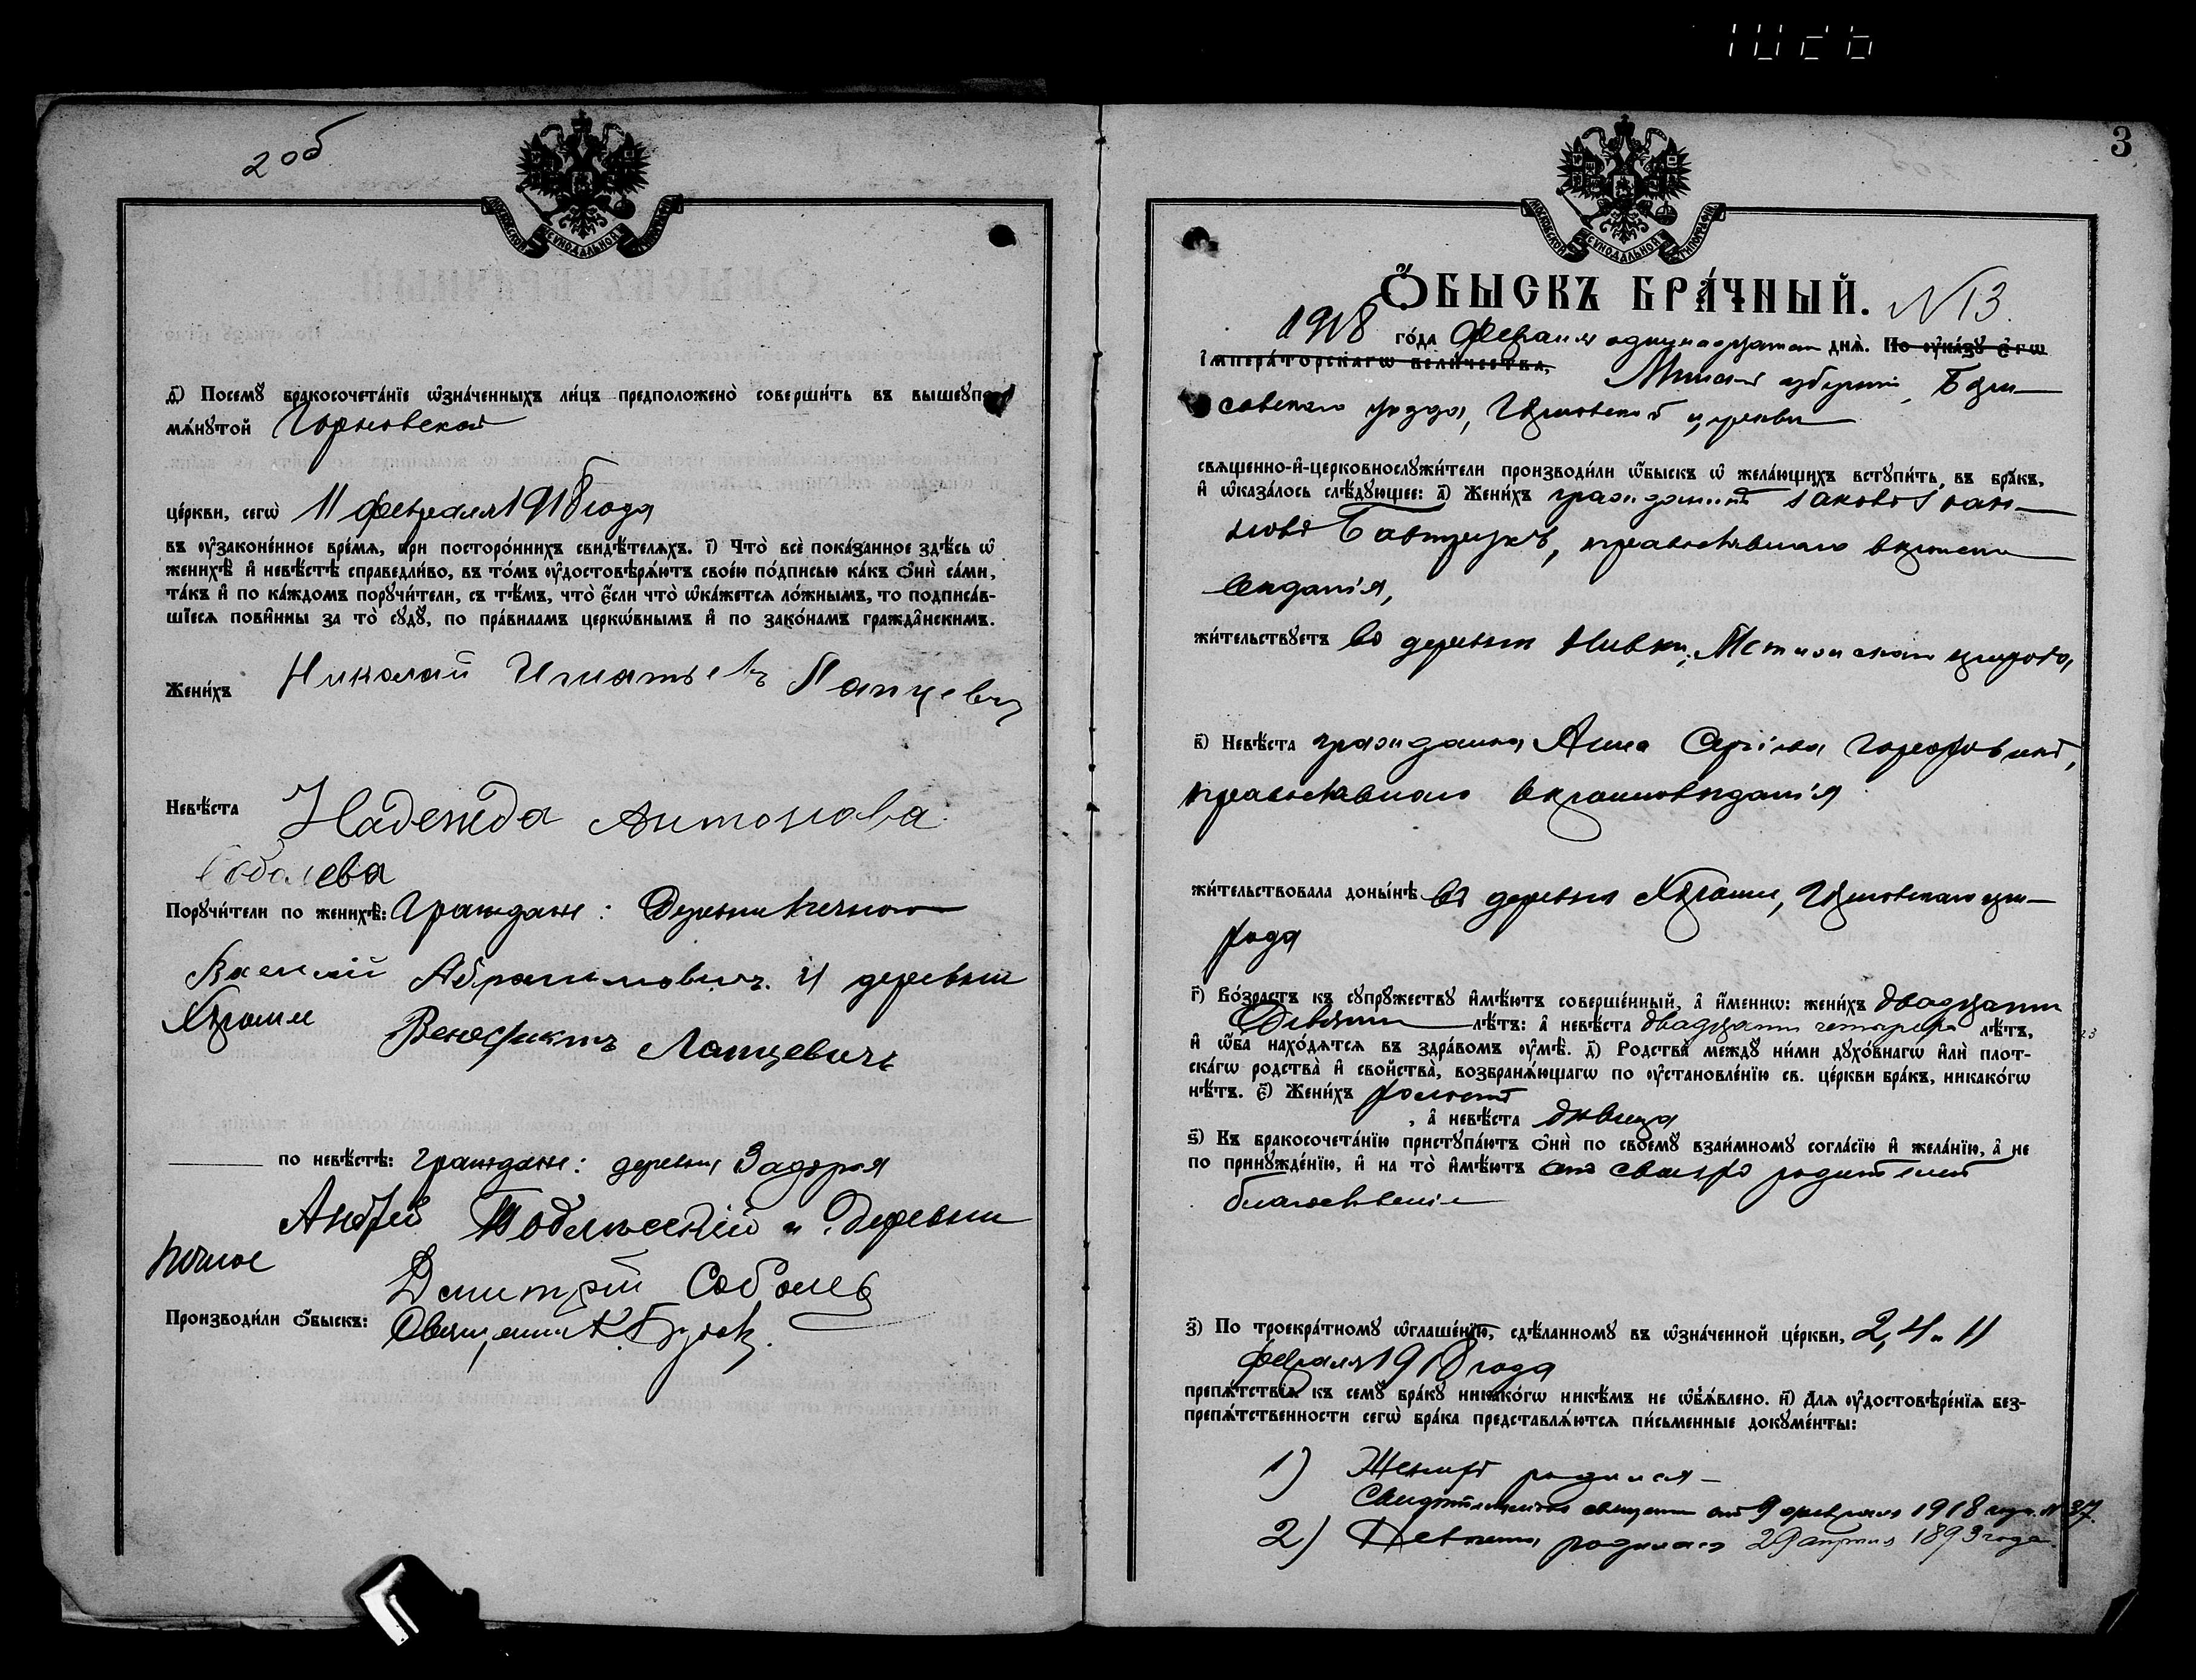 2 об
МОСКОВСКОЙ СѴНОДАЛЬНОЙ ТИПОГРАФІИ
д҃) Посемꙋ̀ бракосочета́нїе ѡ҆зна́ченныхъ ли́цъ предположено̀ соверши́ть въ вышеꙋпо-
мѧ́нꙋтой
це́ркви, сегѡ̀ 11 февраля 1918 года
въ ᲂу҆зако́ненное вре́мѧ, при посторо́ннихъ свидѣ́телѧхъ. і҃) Что̀ всѐ пока́занное здѣ́сь ѡ҆
женихѣ̀ и҆ невѣ́стѣ справедли́во, въ то́мъ ᲂу҆достовѣрѧ́ютъ свое́ю по́дписью ка́къ ѻ҆нѝ са́ми,
та́къ и҆ по ка́ждомъ порꙋчи́тели, съ тѣ́мъ, что̀ є҆́сли что̀ ѡ҆ка́жетсѧ ло́жнымъ, то подписа́в-
шїесѧ пови́нны за то̀ сꙋдꙋ̀, по пра́виламъ церкѡ́внымъ и҆ по зако́намъ гражда́нскимъ.
Жени́хъ Николай Игнатьевъ Лапцевич
Невѣ́ста Надежда Антонова
Соболева
Порꙋчи́тели по женихѣ̀: Граждане: Деревни
Василій Абрамовичъ. И деревни
Венедиктъ Лапцевичъ
по невѣ́стѣ: Граждане: деревни Задорья
Андрей Тобольскій и Деревни
Дмитрій Соболев
Производи́ли ѻ҆́быскъ: Священник К.
3
МОСКОВСКОЙ СѴНОДАЛЬНОЙ ТИПОГРАФІИ
Ѻ҆́БЫСКЪ БРА́ЧНЫЙ. N 13.
1918 го́да Февраля одиннадцатаго днѧ̀. По ᲂу҆ка́зꙋ є҆гѡ̀
І҆мпера́торскагѡ вели́чества, Минской губерніи, Бори-
совскаго уѣзда, церкви
свѧще́нно-и҆-церковнослꙋжи́тели производи́ли ѡ҆́быскъ ѡ҆ жела́ющихъ встꙋпи́ть въ бра́къ,
и҆ ѡ҆каза́лось слѣ́дꙋющее: а҃) Жени́хъ гражданинъ Іаковъ Іоан-
новъ Бавтрукъ, православнаго вѣроиспо-
вѣданія,
жи́тельствꙋетъ въ деревни Нивки, прихода,
в҃) Невѣ́ста гражданка Анна
православнаго вѣроисповѣданія
жи́тельствовала доны́нѣ въ деревни при-
хода
г҃) Во́зрастъ къ сꙋпрꙋ́жествꙋ и҆мѣ́ютъ соверше́нный, а҆ и҆́меннѡ: жени́хъ двадцати
Девяти лѣ́тъ: а҆ невѣ́ста двадцати четырехъ лѣ́тъ,
и҆ ѻ҆́ба нахо́дѧтсѧ въ здра́вомъ ᲂу҆мѣ̀. д҃) Родства̀ междꙋ̀ ни́ми дꙋхо́внагѡ и҆лѝ плот-
ска́гѡ родства̀ и҆ сво́йства, возбранѧ́ющагѡ по ᲂу҆становле́нїю св. це́ркви бра́къ, никако́гѡ
нѣ́тъ. є҃) Жени́хъ холостъ
, а҆ невѣ́ста дѣвица
ѕ҃) Къ бракосочета́нїю пристꙋпа́ютъ ѻ҆нѝ по своемꙋ̀ взаи́мномꙋ согла́сїю и҆ жела́нїю, а҆ не
по принꙋжде́нїю, и҆ на то̀ и҆мѣ́ютъ отъ своихъ родителей
благословеніе
з҃) По троекра́тномꙋ ѡ҆глаше́нїю, сдѣ́ланномꙋ въ ѡ҆зна́ченной це́ркви, 2, 4 и 11
февраля 1918 года
препѧ́тствїѧ къ семꙋ̀ бра́кꙋ никако́гѡ никѣ́мъ не ѡ҆б̾ѧ́влено. и҃) Длѧ ᲂу҆достовѣре́нїѧ без-
препѧ́тственности сегѡ̀ бра́ка представлѧ́ютсѧ пи́сьменные докꙋме́нты:
1) Женихъ родился –
Свидѣтельство священн отъ 9 февраля 1918 года N 37.
2) Невѣста родилась 29 1893 года